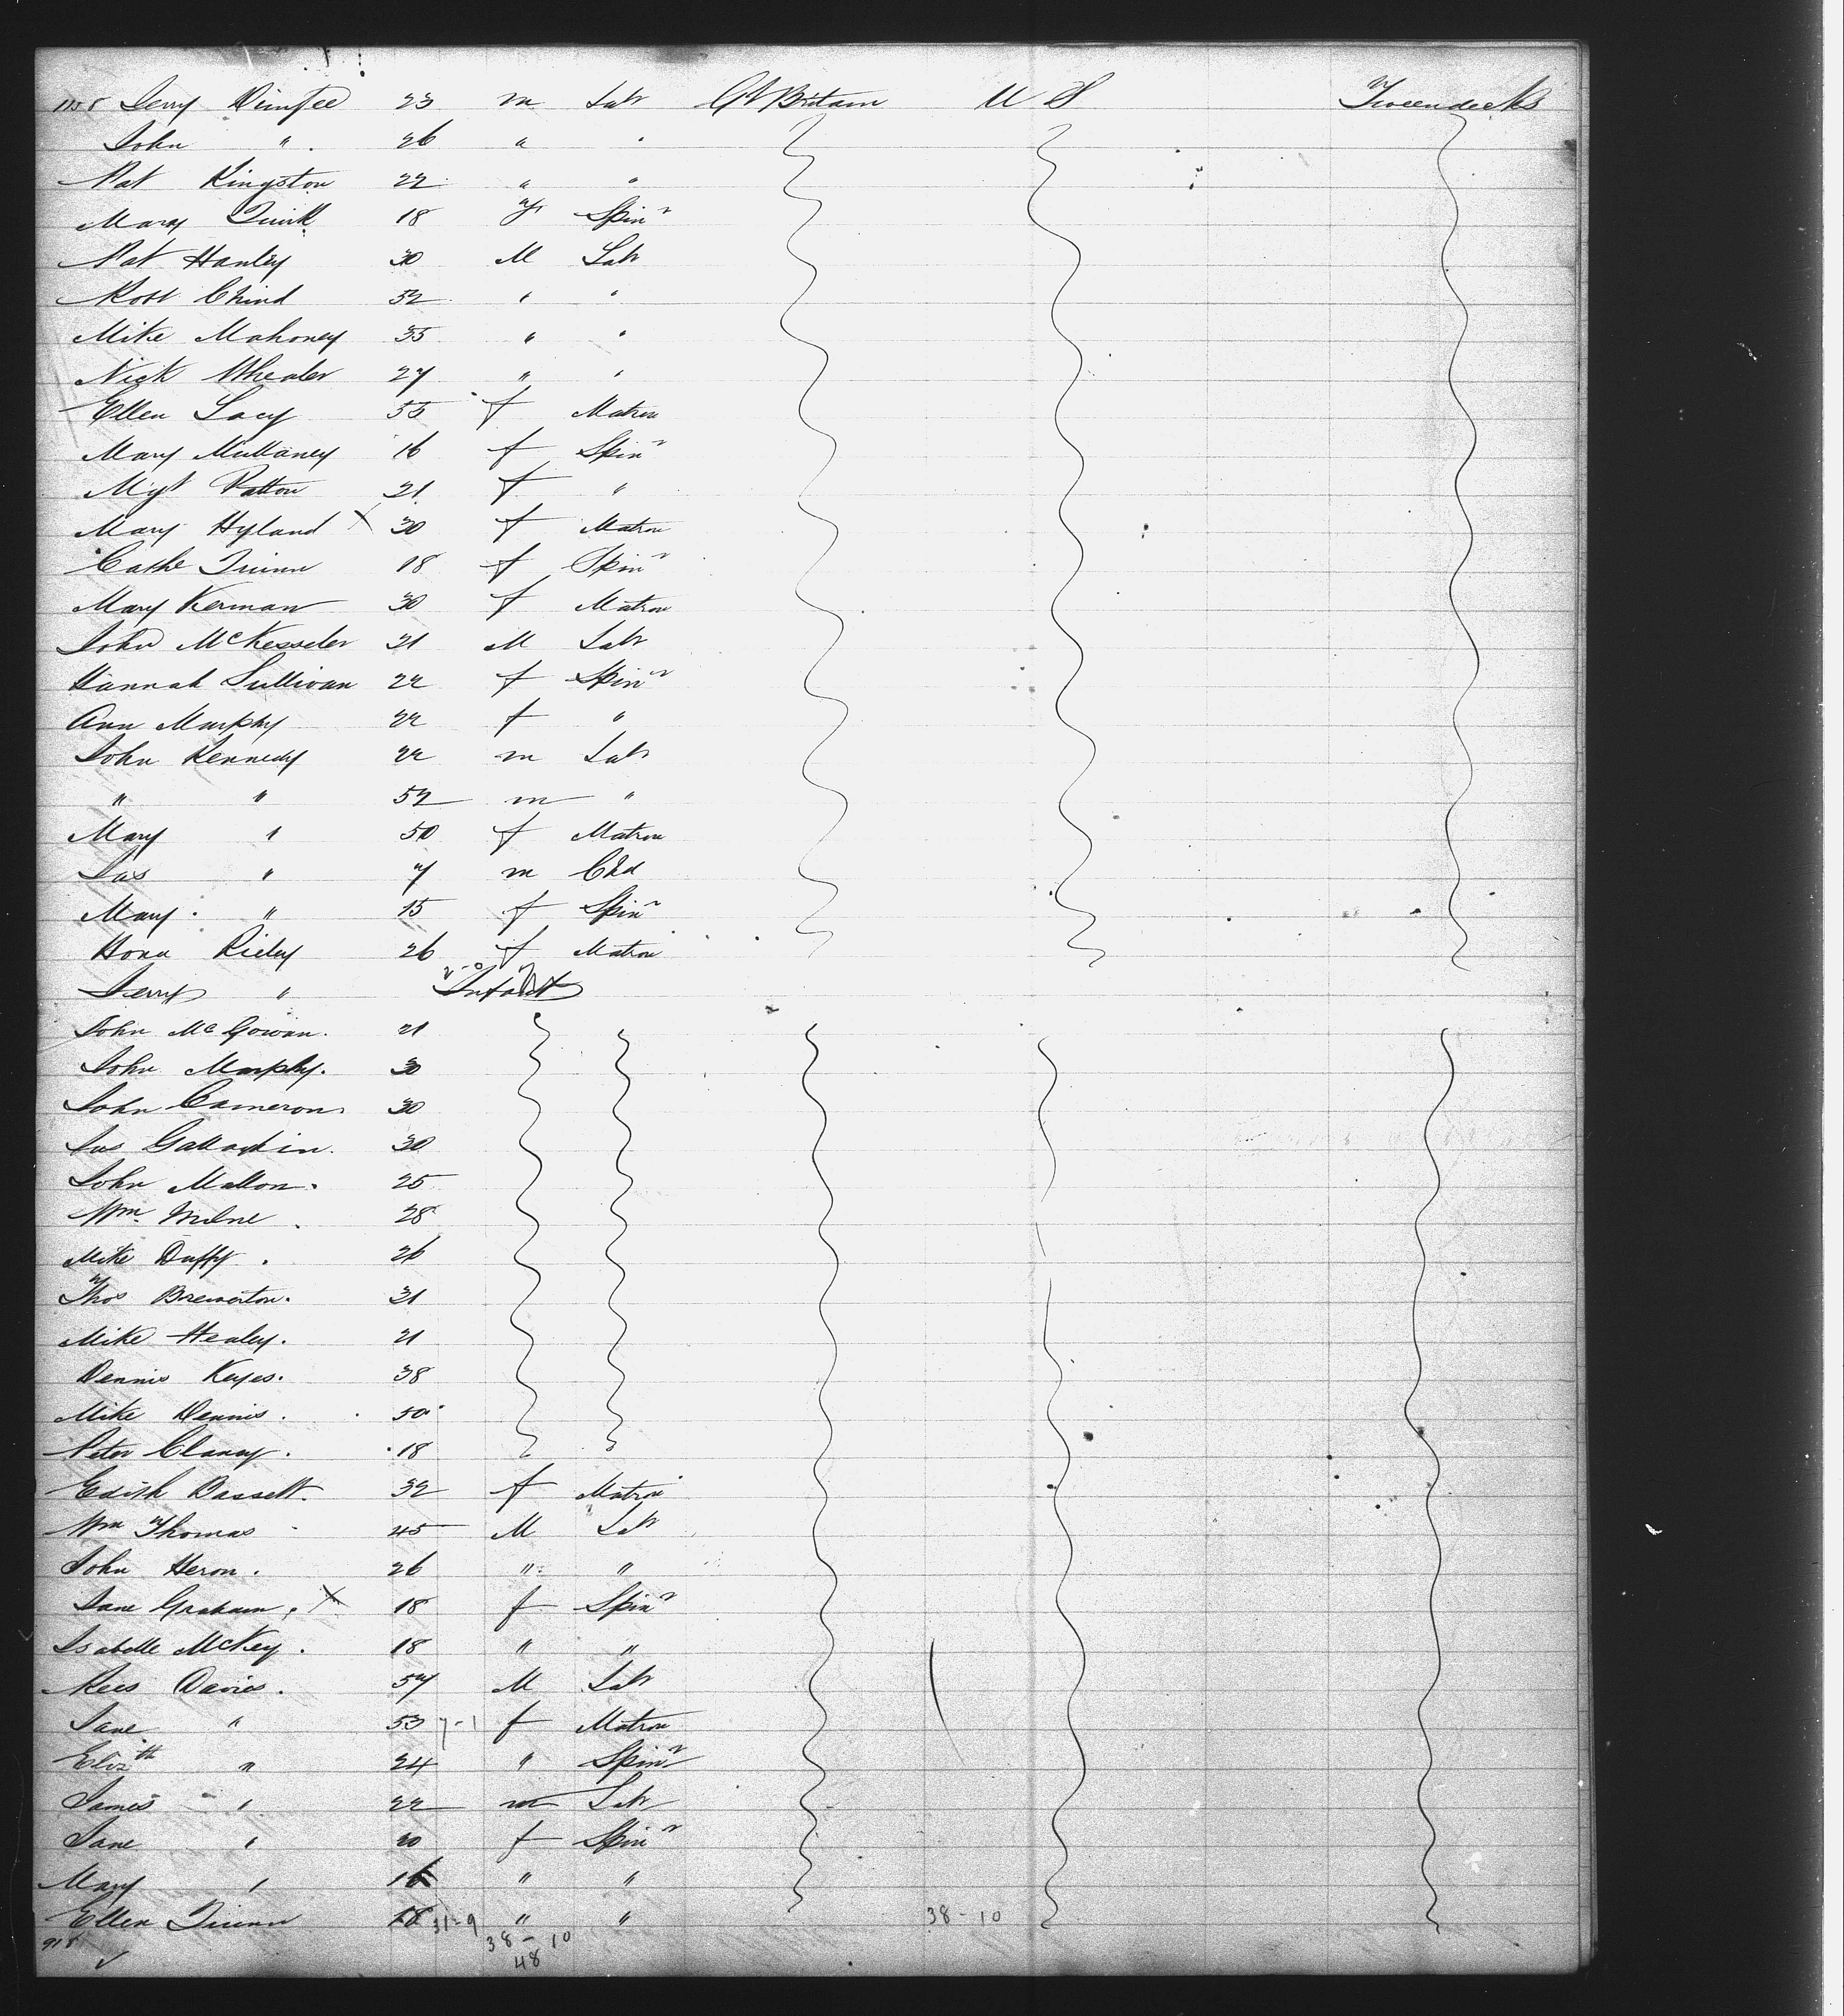 1158 Jerry Dimfee 23 m Labr Gt Britain U S Tweendecks
John " . 26 " "
Pat Kingston 22 " "
Mary Quirk 18 f Spinr
Pat Hanley 30 M Labr
Robt Chind 32 " "
Mike Mahoney 35 " "
Nick Whealer 27 " "
Ellen Lacy 55 f Matron
Mary Mullaney 16 f Spinr
Mgt Patton 21 f "
Mary Hyland X 30 f Matron
Cathe Quinn 18 f Spinr
Mary Kernan 30 f Matron
John McKesseler 21 M Labr
Hannah Sullivan 22 f Spinr
Ann Murphy 22 f "
John Kennedy 22 m Labr
" " 52 m "
Mary " 50 f Matron
Jas " 7 m Chd
Mary " 15 f Spinr
Hona Rieley 26 f Matron
Jerry " Infant
John McGowan. 21
John Murphy. 30
John Cameron. 30
Jas 30
John Mallon. 25
Wm. Milne . 28
Mike Duffy . 26
Thos Brewerton. 31
Mike Healey. 21
Dennis Keyes. 38
Mike Dennis. 50
Peter Clancy. 18
Edith Bassett. 32 f Matron
Wm Thomas 45 M Labr
John Heron. 26 " "
Jane Graham. X 18 f Spinr
Isabelle McKey. 18 " "
Rees Davies. 57 M Labr
Jane " 53 7-1 f Matron
Elizth " 24 " Spinr
James " 22 m Labr
Jane " 20 f Spinr
Mary " 16 " "
Ellen Quinn 18 31-9 " " 38-10
918 38-10
48